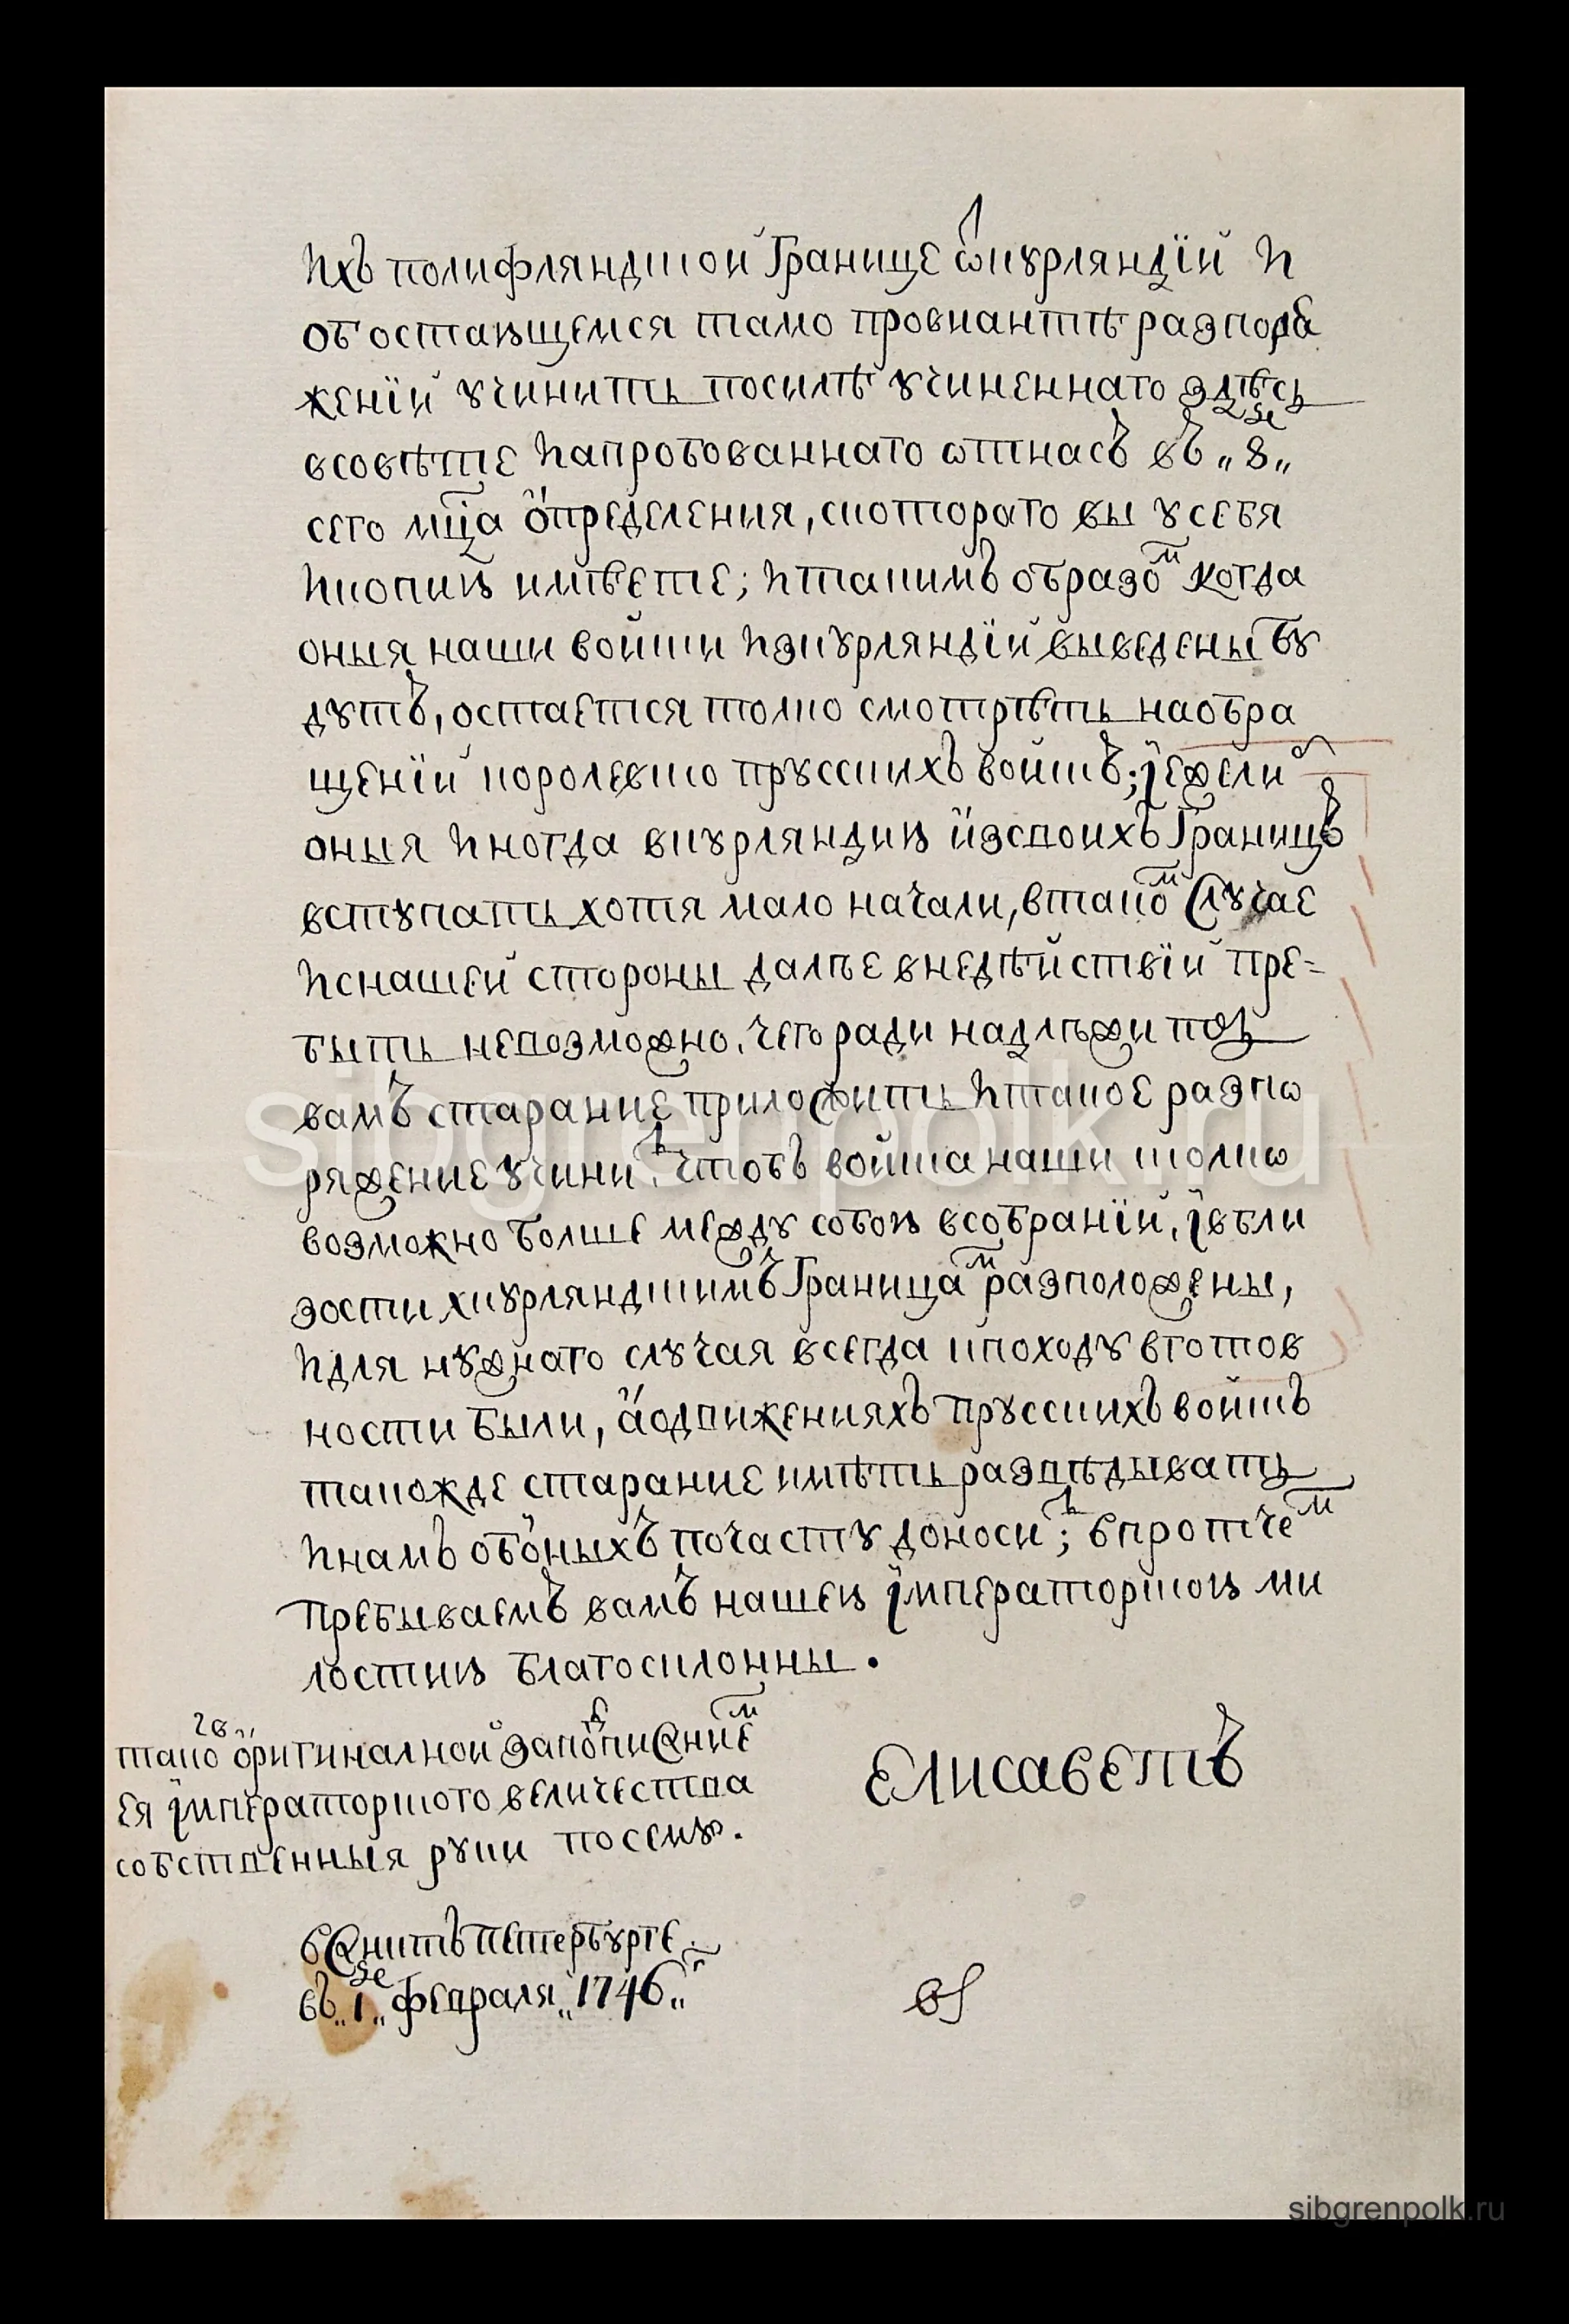 ихъ полифляндской границе ѿкурляндїи и
об остающемся тамо провиантѣ разпоря
женїи учинить посилѣ учиненнаго здѣсь
всовѣте иапробованнаго ѿтнасъ въ „8„ го
сего мц҃а определения, скоторого вы усебя
икопию имѣете; итакимъ образом когда
оныя наши войски изкурляндїи выведены бу
дутъ, остается толко смотрѣть наобра
щенїи королевско прусскихъ войскъ; їежели б
оныя иногда вкурляндию изсвоихъ границъ
вступать хотя мало начали, втаком случае
иснашей стороны далѣе внедѣйствїи пре=
быть невозможно, чего ради надлежитъ
вамъ старание приложить итакое разпо
ряжение учинить, чтобъ войска наши толко
возможно болше между собою всобранїи, ївбли
зости хкурляндскимъ границам разположены,
идля нужнаго случая всегда кпоходу вготов
ности были, аодвижениях прусскихъ войскъ
такожде старание имѣть развѣдывать
инамъ обоныхъ почасту доносить; впротчем
пребываемъ вамъ нашею їмператорскою ми
лостию благосклонны.
таков оригиналной заподписанием
ея їмператорского величества
собственныя руки посему.
Елисаветъ
вСанктъпетербурге
въ „1„ го февраля „1746„ г
sibgrenpolk.ru
sibgrenpolk.ru